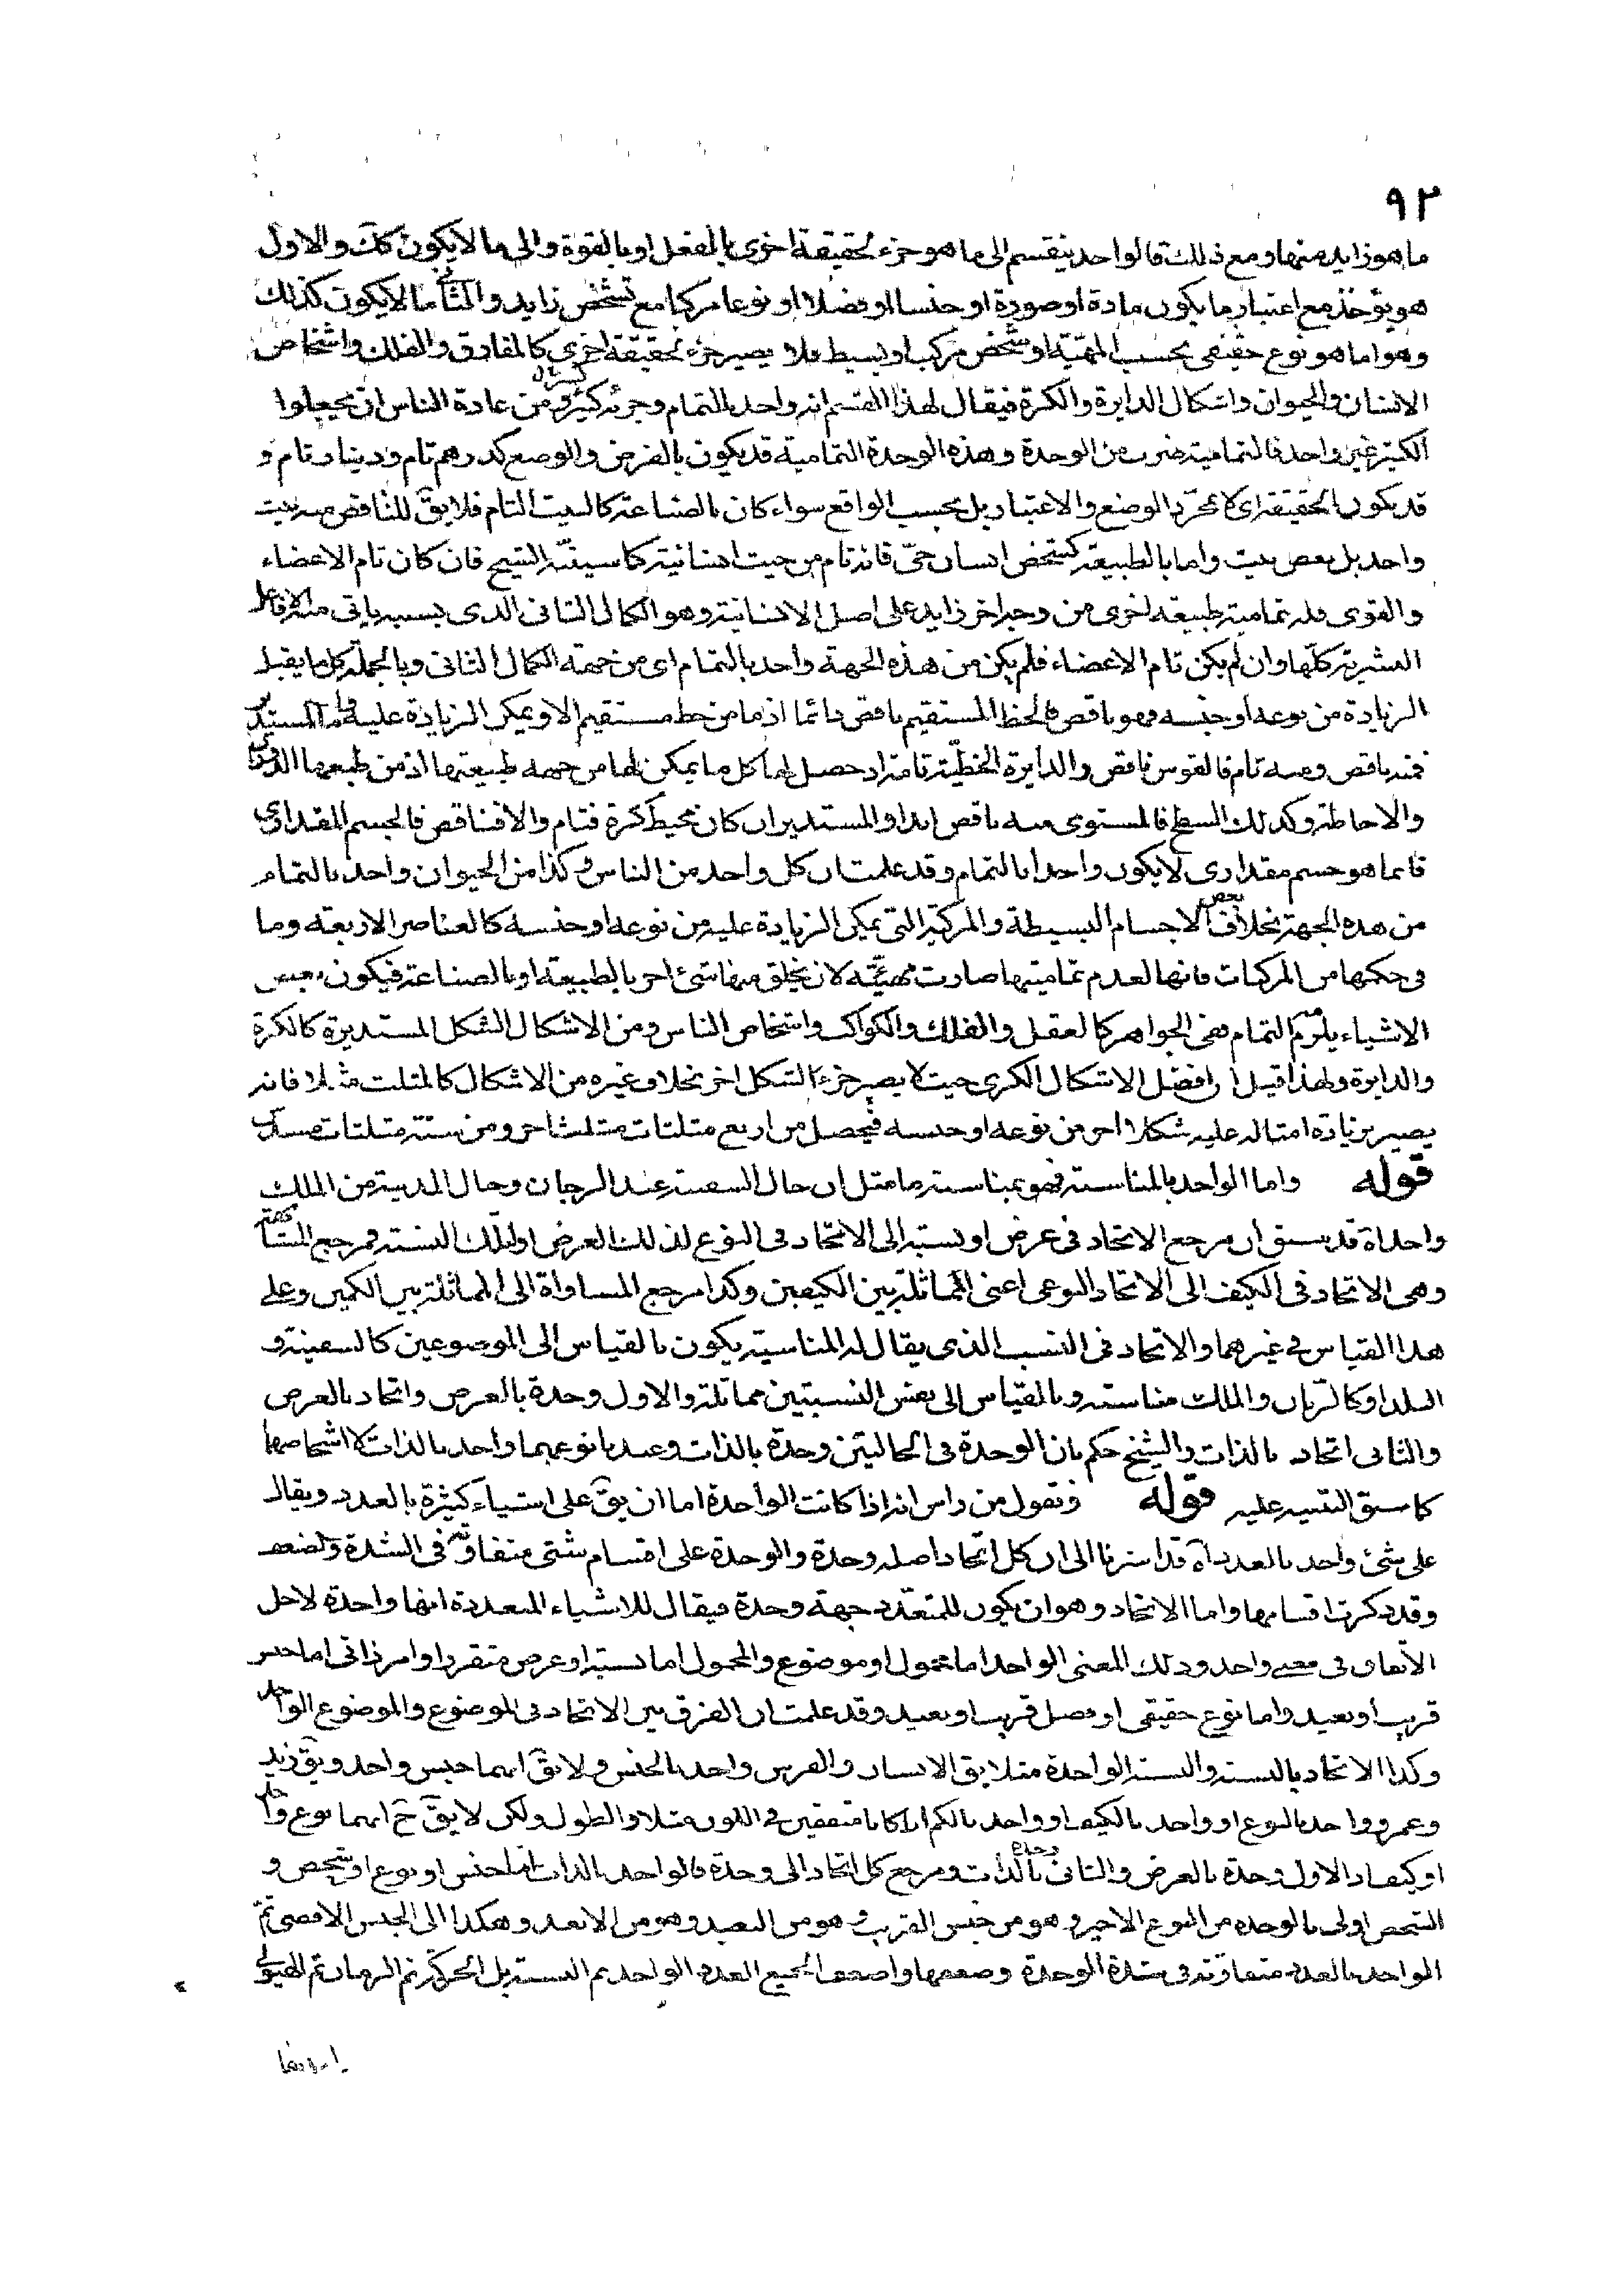 ٩٢
ما هو زايد منها ومع ذلك فالواحد ينقسم الى ما هو جزء لحقيقة اخرى بالفعل او بالقوة والى ما لا يكون كك والاول
هو يؤخذ مع اعتبار ما يكون مادة او صورة او جنسا او فصلا او نوعا مركبا مع تشخص زايد والثانى ما لا يكون كذلك
وهو اما هو نوع حقيقى بحسب المهيّة او شخص مركب او بسيط فلا يصير جزء لحقيقة اخرى كالمفارق والفلك واشخاص
الانسان والحيوان واشكال الدايرة والكرة فيقال لهذا القسم انه واحد بالتمام وجزئه كثير ومن عادة الناس ان يجعلوا
الكثير غير واحد فالتمامية ضرب من الوحدة وهذه الوحدة التمامية قد يكون بالفرض والوضع كدرهم تام ودينار تام و
قد يكون بالحقيقة اى لا بمجرد الوضع والاعتبار بل بحسب الواقع سواء كان بالصناعة كالبيت التام فلا يقّ للناقص منه بيت
واحد بل بعض بيت واما بالطبيعة كشخص انسان حىّ فانه تام من حيث انسانيته كما سيفيّه الشيخ فان كان تام الاعضاء
والقوى فله تمامية طبيعة اخرى من وجه اخر زايد على اصل الانسانية وهو الكمال الثانى الذى بسببه ياتى منه الافاعل
البشرية كلها وان لم يكن تام الاعضاء فلم يكن من هذه الجهة واحد بالتمام اى من جهة الكمال الثانى وبالجملة كل ما يقبل
الزيادة من نوعه او جنسه فهو ناقص فالخط المستقيم ناقص دائما اذ ما من خط مستقيم الا ويمكن الزيادة عليه واما المستدير
فمنه ناقص ومنه تام فالقوس ناقص والدايرة الخطيّة تامة اذ حصل لها كل ما يمكن لها من جهة طبيعتها اذ من طبعها الدوران
والاحاطة وكذلك السطح فالمستوى منه ناقص ابدا والمستدير ان كان محيط كرة فتام والا فناقص فالجسم المقدارى
فانما هو جسم مقدارى لا يكون واحدا بالتمام وقد علمت ان كل واحد من الناس وكذا من الحيوان واحد بالتمام
من هذه الجهة بخلاف بعض الاجسام البسيطة والمركبة التى يمكن الزيادة عليه من نوعه او جنسه كالعناصر الاربعة وما
فى حكمها من المركبات فانها لعدم تماميتها صارت مهيّئة لان يخلق منها شئ اخر بالطبيعة او بالصناعة فيكون بعض
الاشياء يلزم التمام فمن الجواهر كالعقل والفلك والكواكب واشخاص الناس ومن الاشكال الشكل المستديرة كالكرة
والدايرة ولهذا قيل ان افضل الاشكال الكرى حيث لا يصير جزء الشكل اخر بخلاف غيره من الاشكال كالمثلث مثلا فانه
يصير بزيادة امثاله عليه شكلا اخر من نوعه او جنسه فيحصل من اربع مثلثات مثلث اخر ومن ستة مثلثات مسدّس
قوله واما الواحد بالمناسبة فهو بمناسبة ما مثل ان حال السفينة عند الربان وحال المدينة من الملك
واحداه قد سبق ان مرجع الاتحاد فى عرض او نسبة الى الاتحاد فى النوع لذلك العرض او لتلك النسبة فمرجع المشابهة
وهى الاتحاد فى الكيف الى الاتحاد النوعى اعنى المماثلة بين الكيفين وكذا مرجع المساواة الى المماثلة بين الكمين وعلى
هذا القياس فى غيرهما والاتحاد فى النسب الذى يقال له المناسبة يكون بالقياس الى الموضوعين كالسفينة و
البلد او كالربان والملك مناسبة وبالقياس الى نفس النسبتين مماثلة والاول وحدة بالعرض واتحاد بالعرض
والثانى اتحاد بالذات والشيخ حكم بان الوحدة فى الحالتين وحدة بالذات وعندنا نوعهما واحد بالذات لا اشخاصهما
كما سبق التنبيه عليه قوله ونقول من راس انه اذا كانت الواحدة اما ان يقّ على اشياء كثيرة بالعدد ويقال
على شئ واحد بالعدد اه قد اشرنا الى ان كل اتحاد اصله وحدة والوحدة على اقسام شتى متفاوتة فى الشدة والضعف
وقد ذكرت اقسامها واما الاتحاد وهو ان يكون للمتعدّد جهة وحدة فيقال للاشياء المتعددة انها واحدة لاجل
الاتفاق فى معنى واحد وذلك المعنى الواحد اما محمول او موضوع والمحمول اما نسبة او عرض متقرر او امر ذاتى اما جنس
قريب او بعيد واما نوع حقيقى او فصل قريب او بعيد وقد علمت ان الفرق بين الاتحاد فى الموضوع والموضوع الواحد
وكذا الاتحاد بالنسبة والنسبة الواحدة مثلا يقّ الانسان والفرس واحد بالجنس ولا يقّ انهما جنس واحد ويقّ زيد
وعمرو واحد بالنوع او واحد بالكيف او واحد بالكم اذا كانا متفقين فى اللون مثلا والطول ولكن لا يقّ حّ انهما نوع واحد
او كيف اذ الاول وحدة بالعرض والثانى وحدة بالذات ومرجع كل اتحاد الى وحدة فالواحد بالذات اما جنس او نوع او شخص و
الشخص اولى بالوحدة من النوع الاخير وهو من جنس القريب وهو من البعيد وهو من الابعد وهكذا الى الجنس الاقصى ثمّ
الواحد بالعدد متفاوتة فى شدة الوحدة وضعفها واضعف الجميع العدد الواحد ثم النسبة بل الحركة ثم الزمان ثم الهيولى